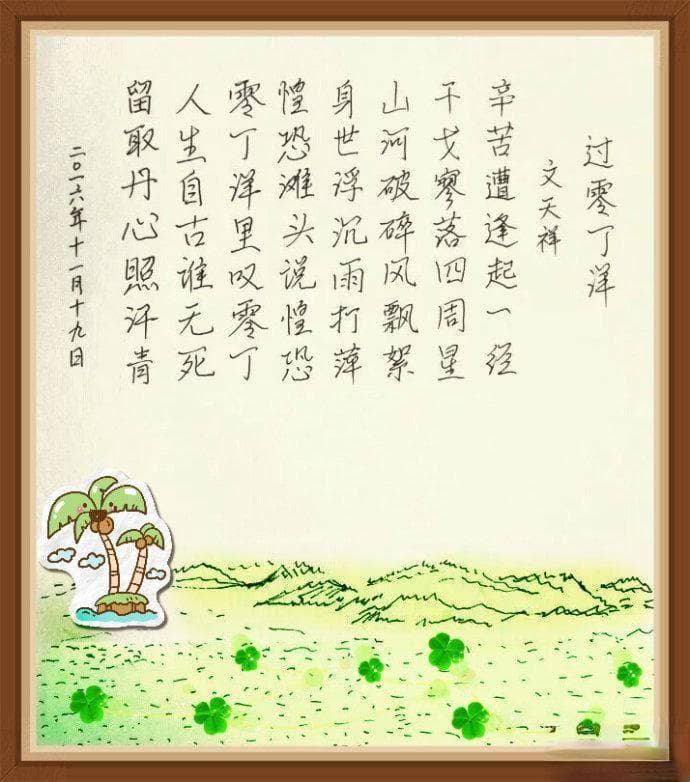 过零丁洋
文天祥
辛苦遭逢起一经
干戈寥落四周星
山河破碎风飘絮
身世浮沉雨打萍
惶恐滩头说惶恐
零丁洋里叹零丁
人生自古谁无死
留取丹心照汗青
二〇一六年十一月十九日